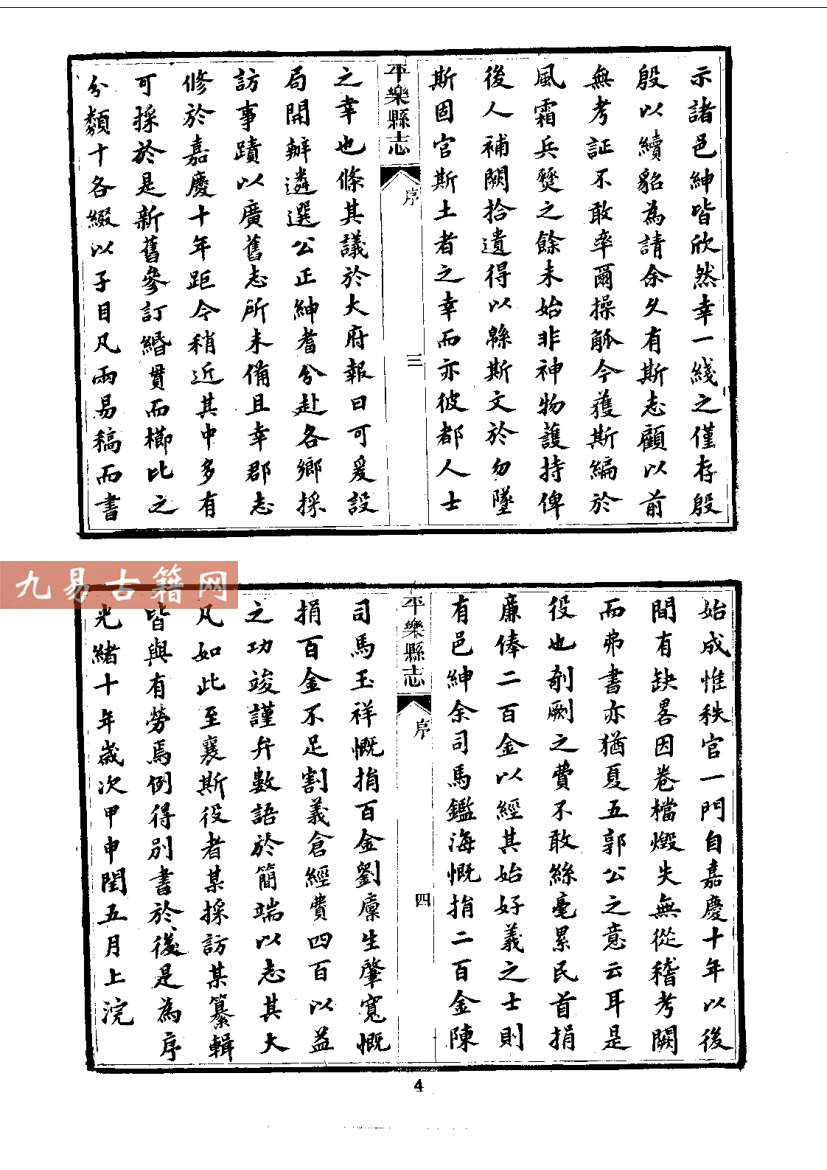 示諸邑紳皆欣然幸一綫之僅存殷
殷以續貂為請余久有斯志顧以前
無考証不敢率爾操觚今獲斯編於
風霜兵燹之餘未始非神物護持俾
後人補闕拾遺得以緜斯文於勿墜
斯固官斯土者之幸而亦彼都人士
平樂縣志
序
三
之幸也條其議於大府報曰可爰設
局開辦遴選公正紳耆分赴各鄉採
訪事蹟以廣舊志所未備且幸郡志
修於嘉慶十年距今稍近其中多有
可採於是新舊參訂緡貫而櫛比之
分類十各綴以子目凡兩易稿而書
九易古籍网
始成惟秩官一門自嘉慶十年以後
間有缺畧因卷檔燬失無從稽考闕
而弗書亦猶夏五郭公之意云耳是
役也剞劂之費不敢絲毫累民首捐
廉俸二百金以經其始好義之士則
有邑紳余司馬鑑海慨捐二百金陳
平樂縣志
序
四
司馬玉祥慨捐百金劉廩生肇寬慨
捐百金不足割義倉經費四百以益
之功竣謹弁數語於簡端以志其大
凡如此至襄斯役者某採訪某纂輯
皆與有勞焉例得別書於後是為序
光緒十年歲次甲申閏五月上浣
4